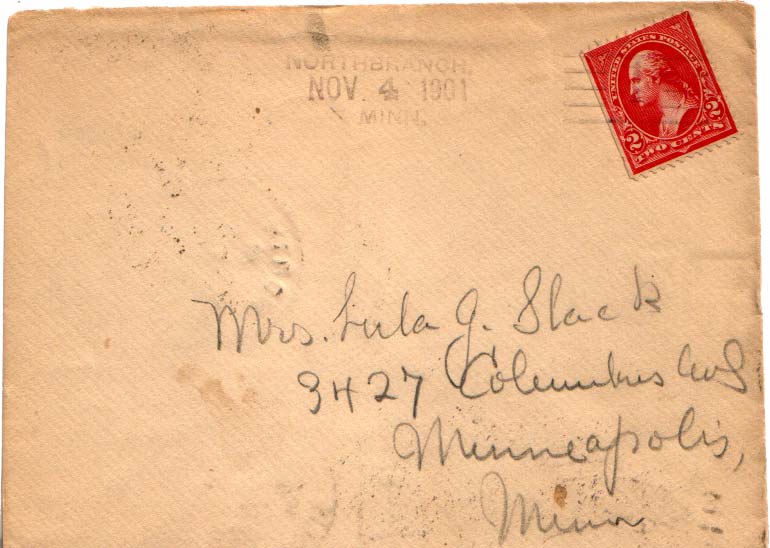 NORTHBRANCH,
NOV 4 1901
MINN.
UNITED STATES POSTAGE
2 2
TWO CENTS
Mrs. Lula J. Slack
3427 Columbus Av S
Minneapolis,
Minn